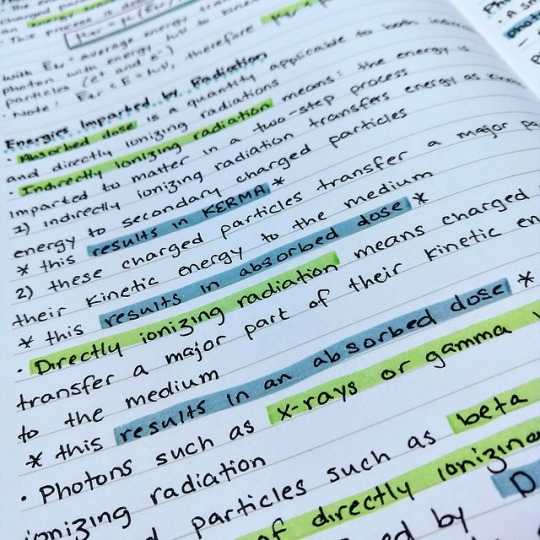 with Ētr: average energy tra
photon with energy, hυ to kinetic
particles (e+ and e-)
· Note: Ētr < E = hυ, therefore
Energies Imparted by Radiation
· Absorbed dose is a quantity applicable to both indirec
and directly ionizing radiations
· Indirectly ionizing radiation means: the energy is
imparted to matter in a two-step process
1) indirectly ionizing radiation transfers energy as kine
energy to secondary charged particles
* this results in KERMA *
2) these charged particles transfer a major pa
their kinetic energy to the medium
* this results in absorbed dose *
· Directly ionizing radiation means charged
transfer a major part of their kinetic en
to the medium
* this results in an absorbed dose *
· Photons such as x-rays or gamma
ionizing radiation
particles such as beta
of directly ionizing
by D